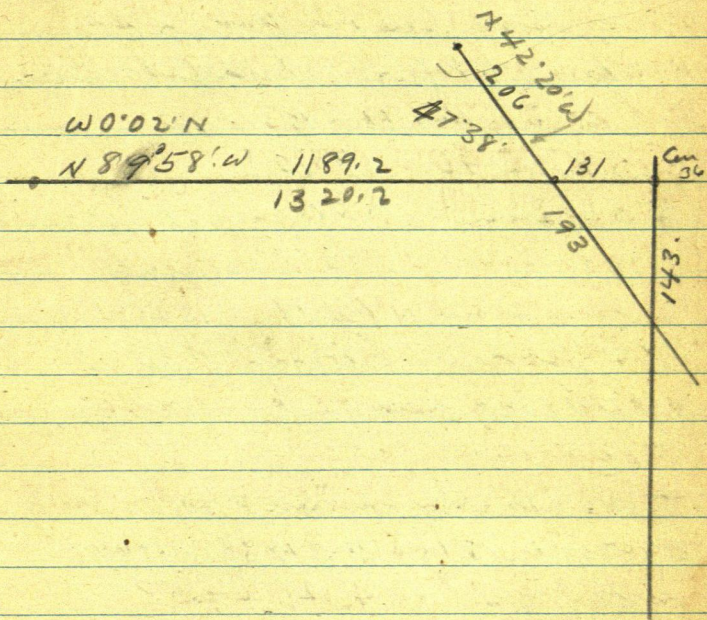 N 42°20'W
206
47°38'
W 0°02'N
N 89°58'W 1189.2
1320.2
131
Cen
36
193
143.